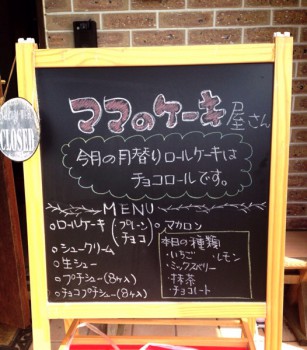 ココのケーキ屋さん
今月の月替りロールケーキは
チョコロールです。
MENU
ロールケーキ(プレーン チョコ)
シュークリーム
生シュー
プチシュー(8ヶ入)
チョコプチシュー(8ヶ入)
マカロン
本日の種類
・いちご ・レモン
・ミックスベリー
・抹茶
・チョコレート
CLOSED